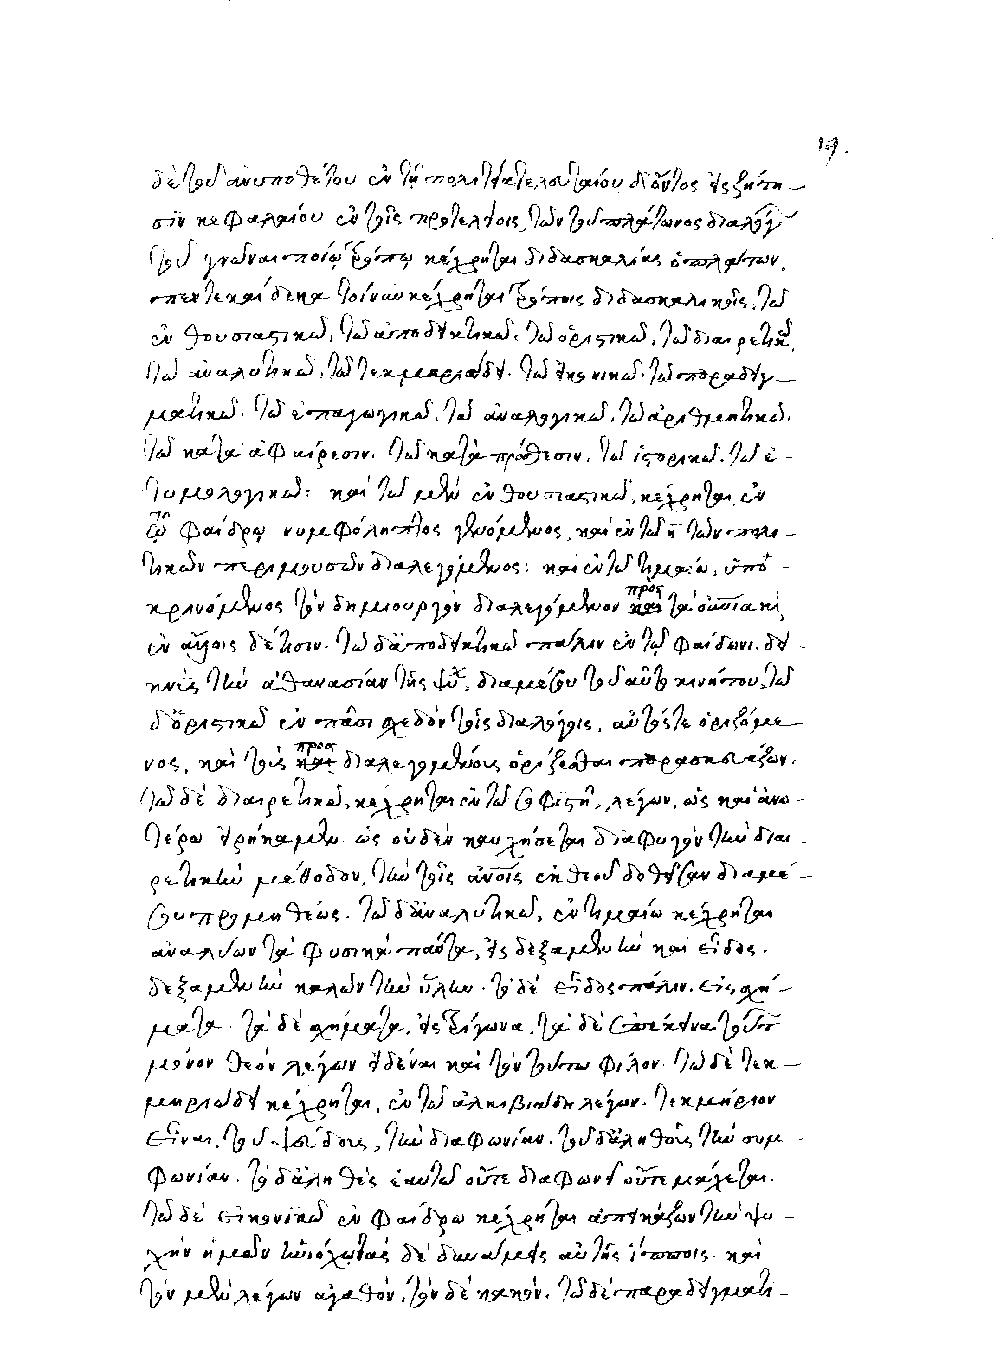 19.
δὲ τοῦ ἀνυποθέτου ἐν τῇ πολιτείᾳ τελευταίου δ' ὄντος εἰς ζήτη-
σιν κεφαλαίου ἐν τοῖς προτελείοις τῶν τοῦ πλάτωνος διαλόγ
τοῦ γνῶναι ποίῳ τρόπῳ κέχρηται διδασκαλίας ὁ πλάτων.
πεντεκαίδεκα τοίνυν κέχρηται τρόποις διδασκαλικοῖς. τῷ
ἐνθουσιαστικῷ. τῷ ἀποδεικτικῷ. τῷ ὁριστικῷ. τῷ διαιρετικῷ.
τῷ ἀναλυτικῷ. τῷ τεκμηριώδει. τῷ εἰκονικῷ. τῷ παραδειγ-
ματικῷ. τῷ ἐπαγωγικῷ. τῷ ἀναλογικῷ. τῷ ἀριθμητικῷ.
τῷ κατὰ ἀφαίρεσιν. τῷ κατὰ πρόθεσιν. τῷ ἱστορικῷ. τῷ ἐ-
τυμολογικῷ: καὶ τῷ μὲν ἐνθουσιαστικῷ, κέχρηται ἐν
τῷ φαίδρῳ νυμφόληπτος γενόμενος, καὶ ἐν τῷ η τῶν πολι-
τικῶν περὶ μουσῶν διαλεγόμενος: καὶ ἐν τῷ τιμαίῳ, ὑπο-
κρινόμενος τὸν δημιουργὸν διαλεγόμενον πρὸς τὰ οὐράνια καὶ
ἐν ἄλλοις δέ τισιν. τῷ δ' ἀποδεικτικῷ πάλιν ἐν τῷ φαίδωνι. δει-
κνὺς τὴν ἀθανασίαν τῆς ψυχῆς, διὰ μέσου τοῦ αὐτοκινήτου. τῷ
δ' ὁριστικῷ ἐν πᾶσι σχεδὸν τοῖς διαλόγοις, αὐτός τε ὁριζόμε-
νος, καὶ τοὺς προσδιαλεγομένους ὁρίζεσθαι παρασκευάζων.
τῷ δὲ διαιρετικῷ, κέχρηται ἐν τῷ σοφιστῇ, λέγων, ὡς καὶ ἀνω-
τέρω εἰρήκαμεν ὡς οὐδὲν καυχήσεται διαφυγὸν τὴν διαι-
ρετικὴν μέθοδον, τὴν τοῖς ἀνοις ἐκ θεοῦ δοθεῖσαν διὰ μέ-
σου προμηθέως. τῷ δ' ἀναλυτικῷ, ἐν τιμαίῳ κέχρηται
ἀναλύων τὰ φυσικὰ πάντα, εἰς δεξαμενὴν καὶ εἶδος.
δεξαμενὴν καλῶν τὴν ὕλην. τὸ δὲ εἶδος πάλιν. εἰς σχή-
ματα. τὰ δὲ σχήματα, εἰς τρίγωνα, τὰ δὲ ἐπέκεινα τούτων
μόνον θεὸν λέγων εἰδέναι καὶ τὸν τούτω φίλον. τῷ δὲ τεκ-
μηριώδει κέχρηται, ἐν τῷ ἀλκιβιάδη λέγων. τεκμήριον
εἶναι, τοῦ ψεύδους, τὴν διαφωνίαν. τοῦ δ' ἀληθοῦς τὴν συμ-
φωνίαν. τὸ δ' ἀληθὲς ἑαυτῷ οὔτε διαφωνεῖ οὔτε μάχεται.
τῷ δὲ εἰκονικῷ ἐν φαίδρῳ κέχρηται ἀπεικάζων τὴν ψυ-
χὴν ἡμῶν ἡνιόχῳ τὰς δὲ δυνάμεις αὐτῆς ἵπποις. καὶ
τὸν μὲν λέγων ἀγαθὸν, τὸν δὲ κακόν. τῷ δὲ παραδειγματι-